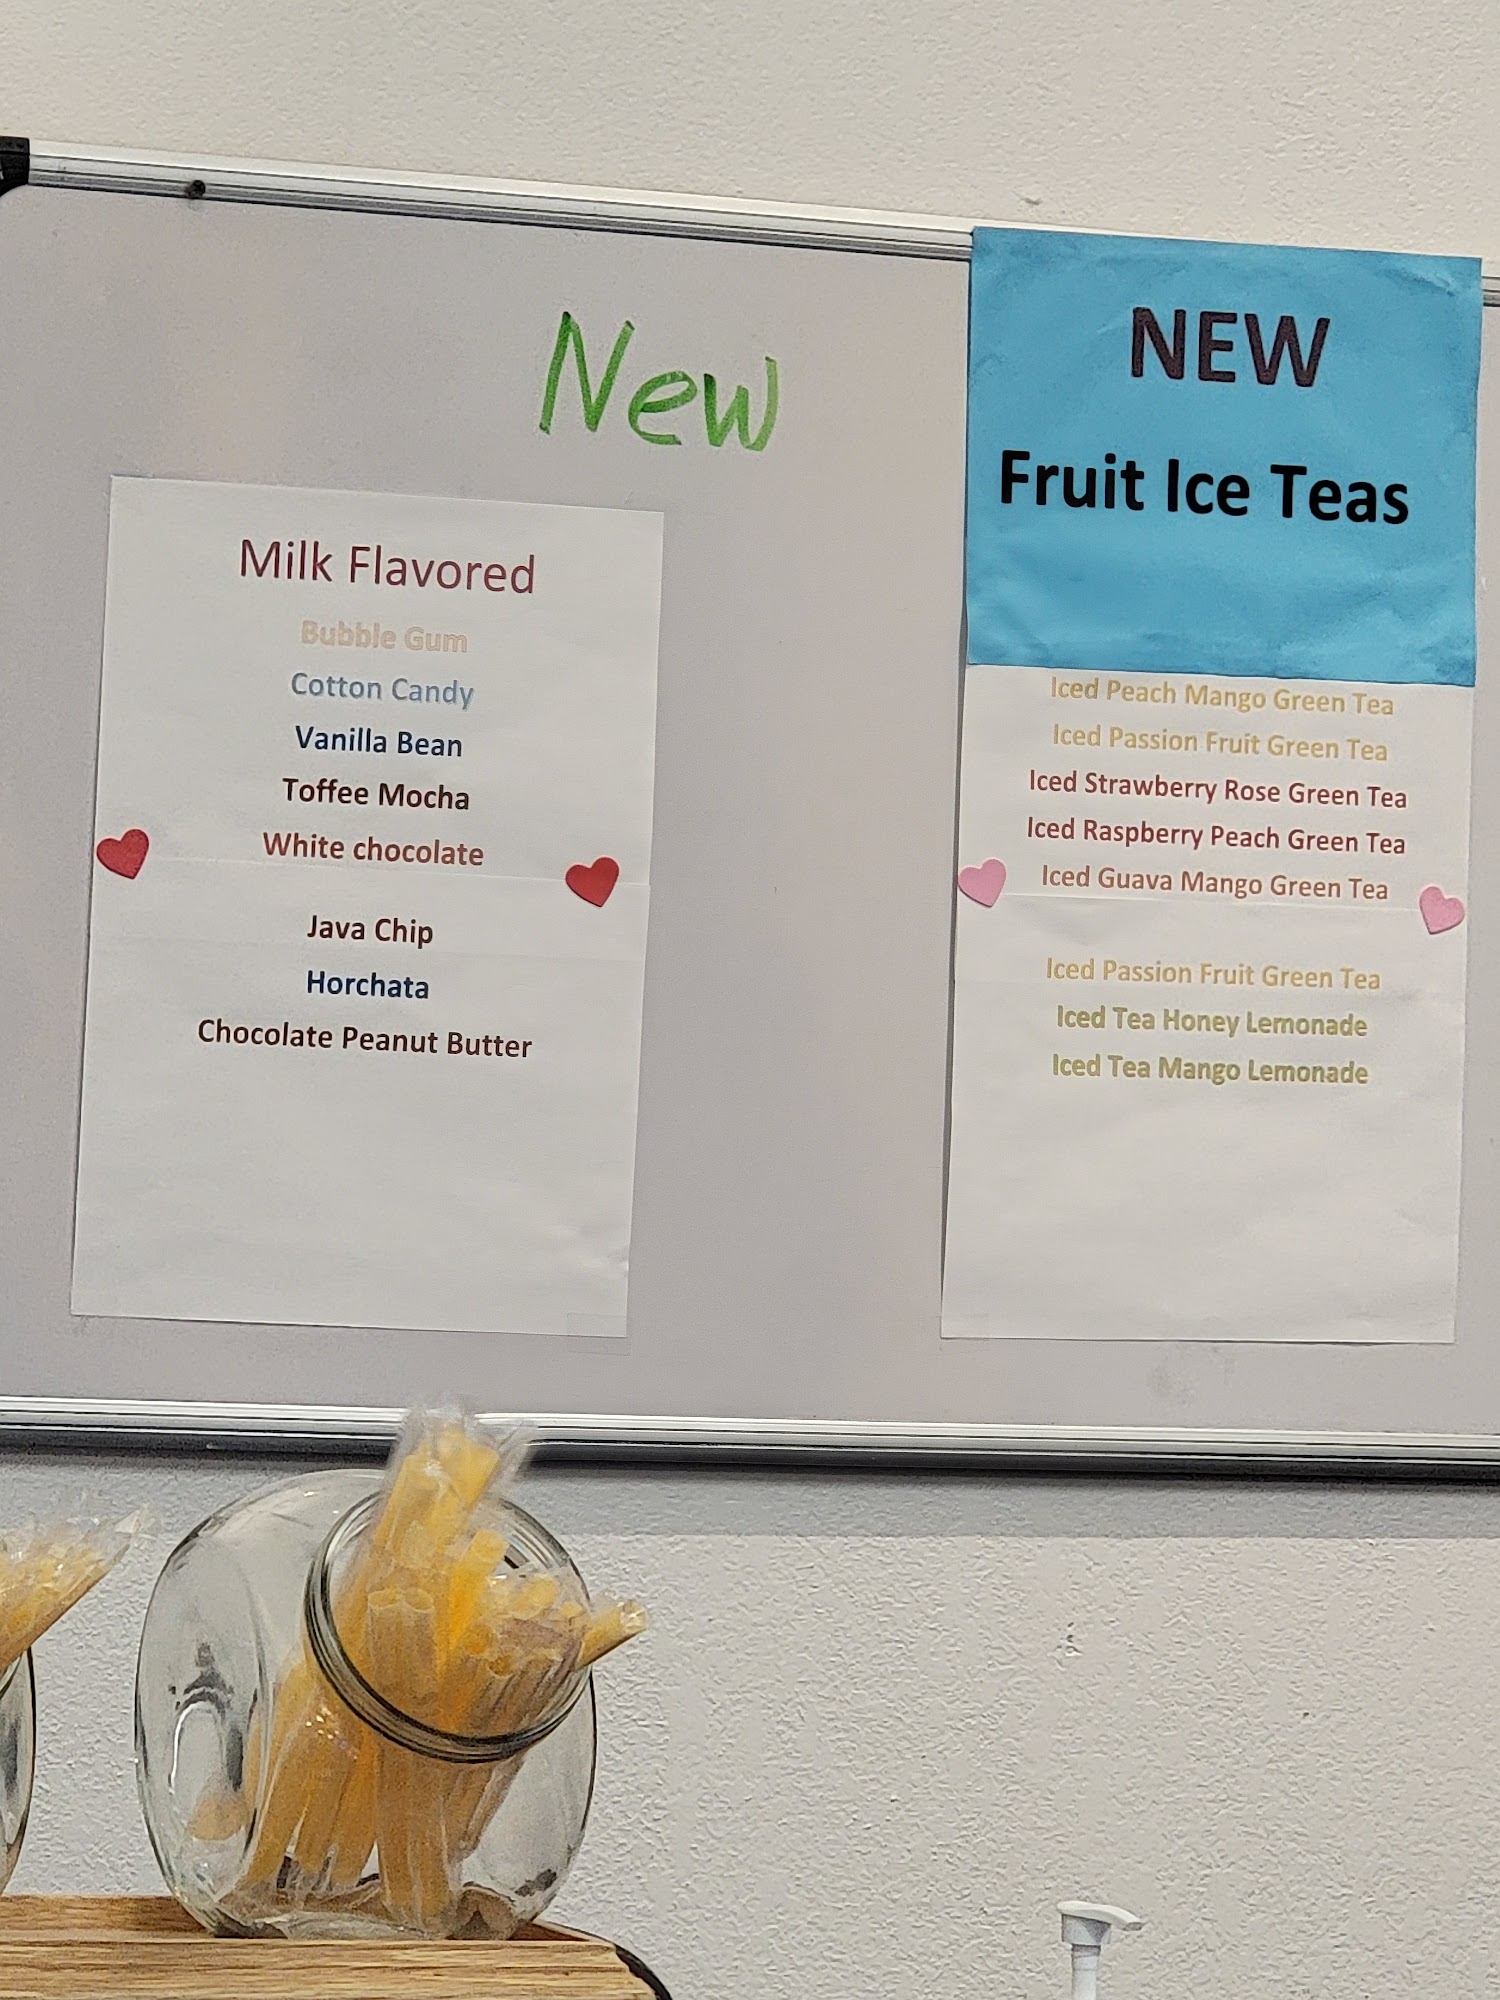 New
Milk Flavored
Bubble Gum
Cotton Candy
Vanilla Bean
Toffee Mocha
White chocolate
Java Chip
Horchata
Chocolate Peanut Butter
NEW
Fruit Ice Teas
Iced Peach Mango Green Tea
Iced Passion Fruit Green Tea
Iced Strawberry Rose Green Tea
Iced Raspberry Peach Green Tea
Iced Guava Mango Green Tea
Iced Passion Fruit Green Tea
Iced Tea Honey Lemonade
Iced Tea Mango Lemonade